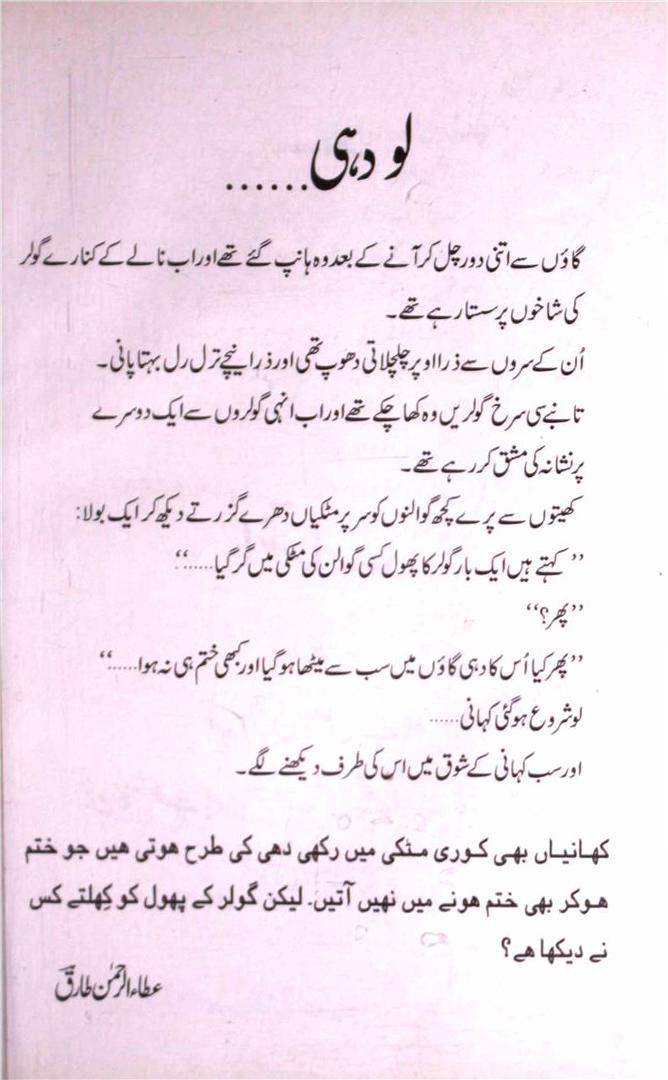 لو دہی ......
گاؤں سے اتنی دور چل کر آنے کے بعد وہ ہانپ گئے تھے اور اب نالے کے کنارے گولر
کی شاخوں پر سستا رہے تھے۔
اُن کے سروں سے ذرا اوپر چلچلاتی دھوپ تھی اور ذرا نیچے ترل رل بہتا پانی۔
تانبے سی سرخ گولریں وہ کھا چکے تھے اور اب انہی گولروں سے ایک دوسرے
پر نشانہ کی مشق کر رہے تھے۔
کھیتوں سے پرے کچھ گوالنوں کو سر پر مٹکیاں دھرے گزرتے دیکھ کر ایک بولا:
”کہتے ہیں ایک بار گولر کا پھول کسی گوالن کی مٹکی میں گر گیا.....“
”پھر؟“
”پھر کیا اُس کا دہی گاؤں میں سب سے میٹھا ہو گیا اور کبھی ختم ہی نہ ہوا.....“
لو شروع ہو گئی کہانی......
اور سب کہانی کے شوق میں اس کی طرف دیکھنے لگے۔
کہانیاں بھی کوری مٹکی میں رکھی دہی کی طرح ہوتی ہیں جو ختم
ہوکر بھی ختم ہونے میں نہیں آتیں۔ لیکن گولر کے پھول کو کِھلتے کس
نے دیکھا ہے؟
عطاء الرحمٰن طارق